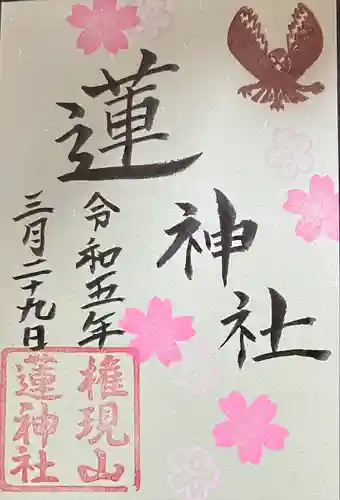 蓮
神
社
令和五年
三月二十九日
権現山
蓮神社